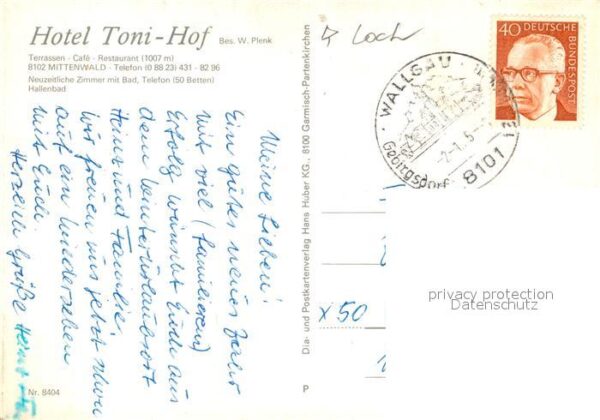 Hotel Toni-Hof Bes. W. Plenk
Terrassen - Café - Restaurant (1007 m)
8102 MITTENWALD · Telefon (0 88 23) 431 - 82 96
Neuzeitliche Zimmer mit Bad, Telefon (50 Betten)
Hallenbad
Meine Lieben!
Ein gutes neues Jahr
mit viel (familiärem)
Erfolg wünscht Euch aus
dem Winterurlaubsort
Heinz und Familie.
Wir freuen uns jetzt schon
auf ein Wiedersehen
mit Euch.
Herzliche Grüße Heinz
Nr. 8404
Dia- und Postkartenverlag Hans Huber KG., 8100 Garmisch-Partenkirchen
P
Loch
40 DEUTSCHE BUNDESPOST
WALLGAU
8101
Gebirgsdorf
-2.-1.
x 50
privacy protection
Datenschutz